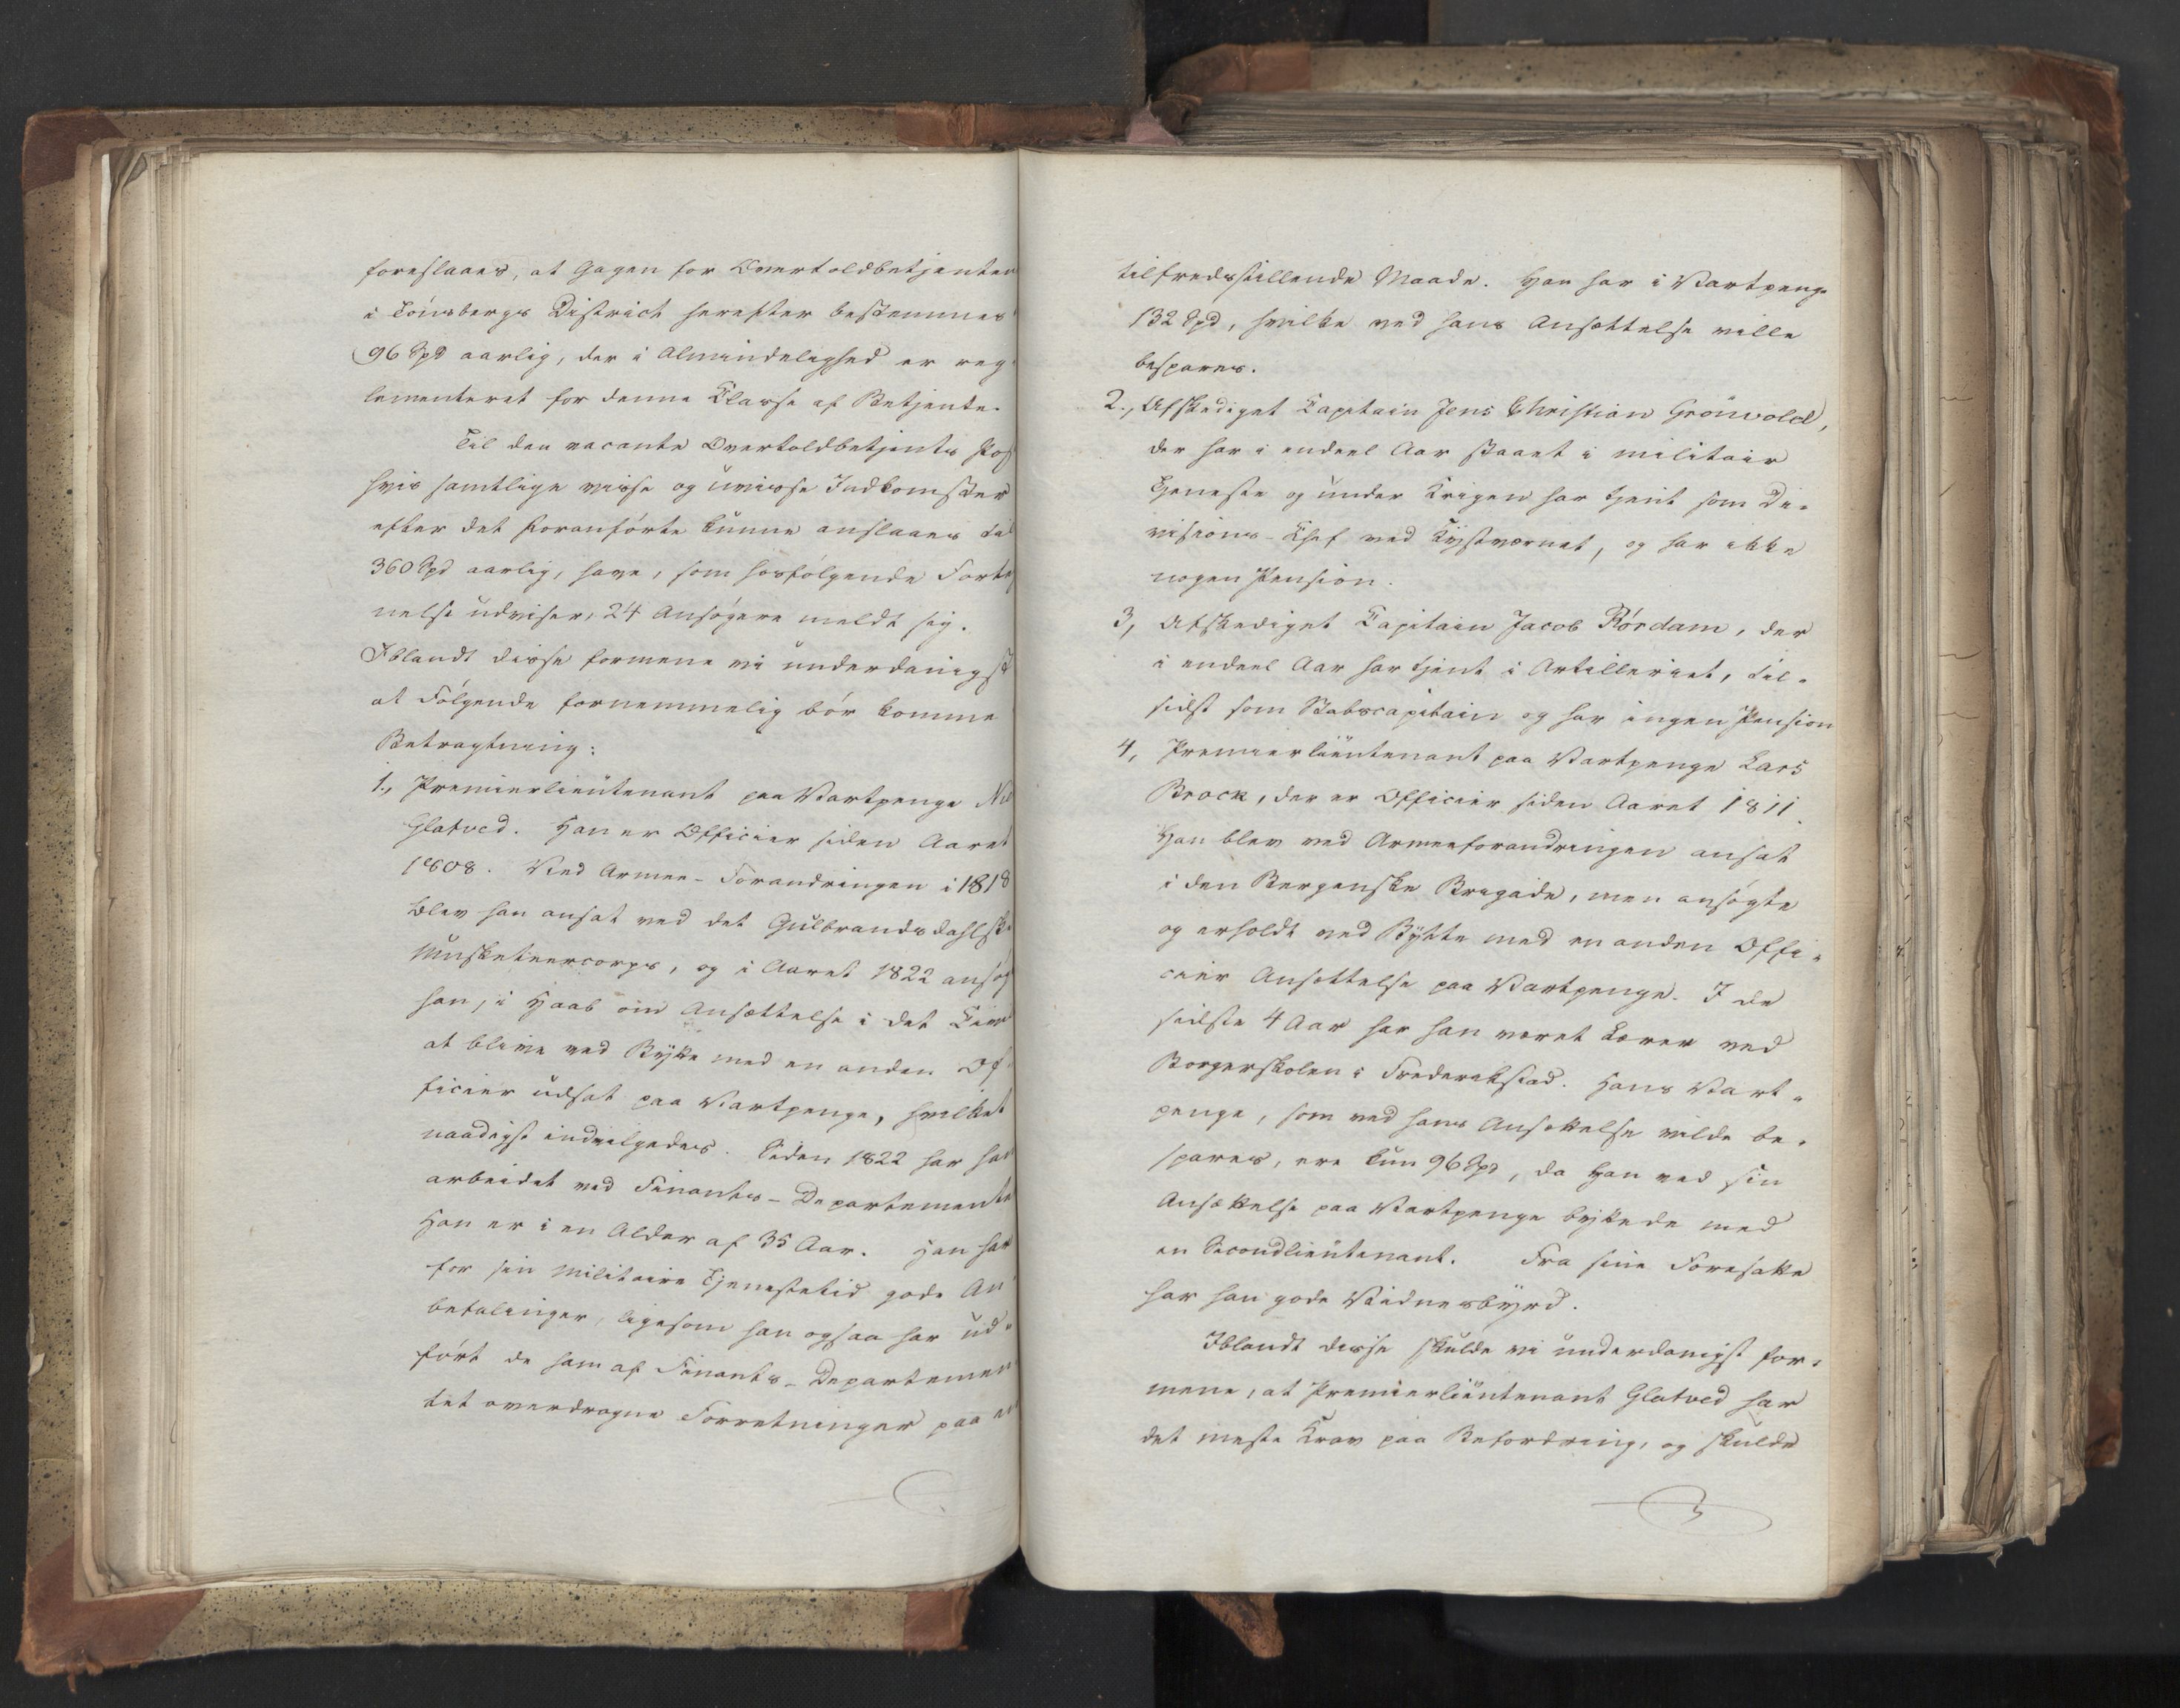 foreslaaes, at Gagen for Overtoldbetjenten
i Tønsbergs District herefter bestemmes
96 Spd aarlig, der i Almindelighed er reg
lementeret for denne Classe af Betjente.
Til den vacante Overtoldbetjents Post
hvis samtlige visse og uvisse Indkomster
efter det Foranførte kunne anslaaes til
360 Spd aarlig, have, som hosfølgende Forteg
nelse udviser, 24 Ansøgere meldt sig.
Iblandt disse formene vi underdanigst
at Følgende fornemmelig bør komme
Betragtning:
1., Premierlieutenant paa Vartpenge
Glatved. Han er Officier siden Aaret
1808. Ved Armee-Forandringen i 1818
blev han ansat ved det Gulbrandsdahlske
Musketeercorps, og i Aaret 1822 ansøg
han, i Haab om Ansættelse i det
at blive ved Bytte med en anden Of
ficier udsat paa Vartpenge, hvilket
naadigst indvilgedes. Siden 1822 har han
arbeidet ved Finants-Departemente
Han er i en Alder af 35 Aar. Han har
for sin militaire Tjenestetid gode An
befalinger, ligesom han ogsaa har ud-
ført de ham af Finants-Departemen
tet overdragne Forretninger paa en
tilfredsstillende Maade. Han har i Vartpenge
132 Spd, hvilke ved hans Ansættelse ville
bespares.
2., Afskediget Capitain Jens Christian Grönvold,
der har i endeel Aar staaet i militair
Tjeneste og under Krigen har tjent som Di-
visions-Chef ved Kystværnet, og har ikke
nogen Pension.
3, Afskediget Capitain Jacob Rördam, der
i endeel Aar har tjent i Artilleriet, til-
sidst som Stabscapitain og har ingen Pension
4, Premierlieutenant paa Vartpenge Lars
Brock, der er Officier siden Aaret 1811.
Han blev ved Armeeforandringen ansat
i den Bergenske Brigade, men ansøgte
og erholdt ved Bytte med en anden Offi-
cier Ansættelse paa Vartpenge. I de
sidste 4 Aar har han været Lærer ved
Borgerskolen i Frederikstad. Hans Vart-
penge, som ved hans Ansættelse vilde be-
spares, ere kun 96 Spd, da Han ved sin
Ansættelse paa Vartpenge byttede med
en Secondlieutenant. Fra sine Foresatte
har han gode Vidnesbyrd.
Iblandt disse skulde vi underdanigst for-
mene, at Premierlieutenant Glatved har
det meste Krav paa Befordring, og skulde